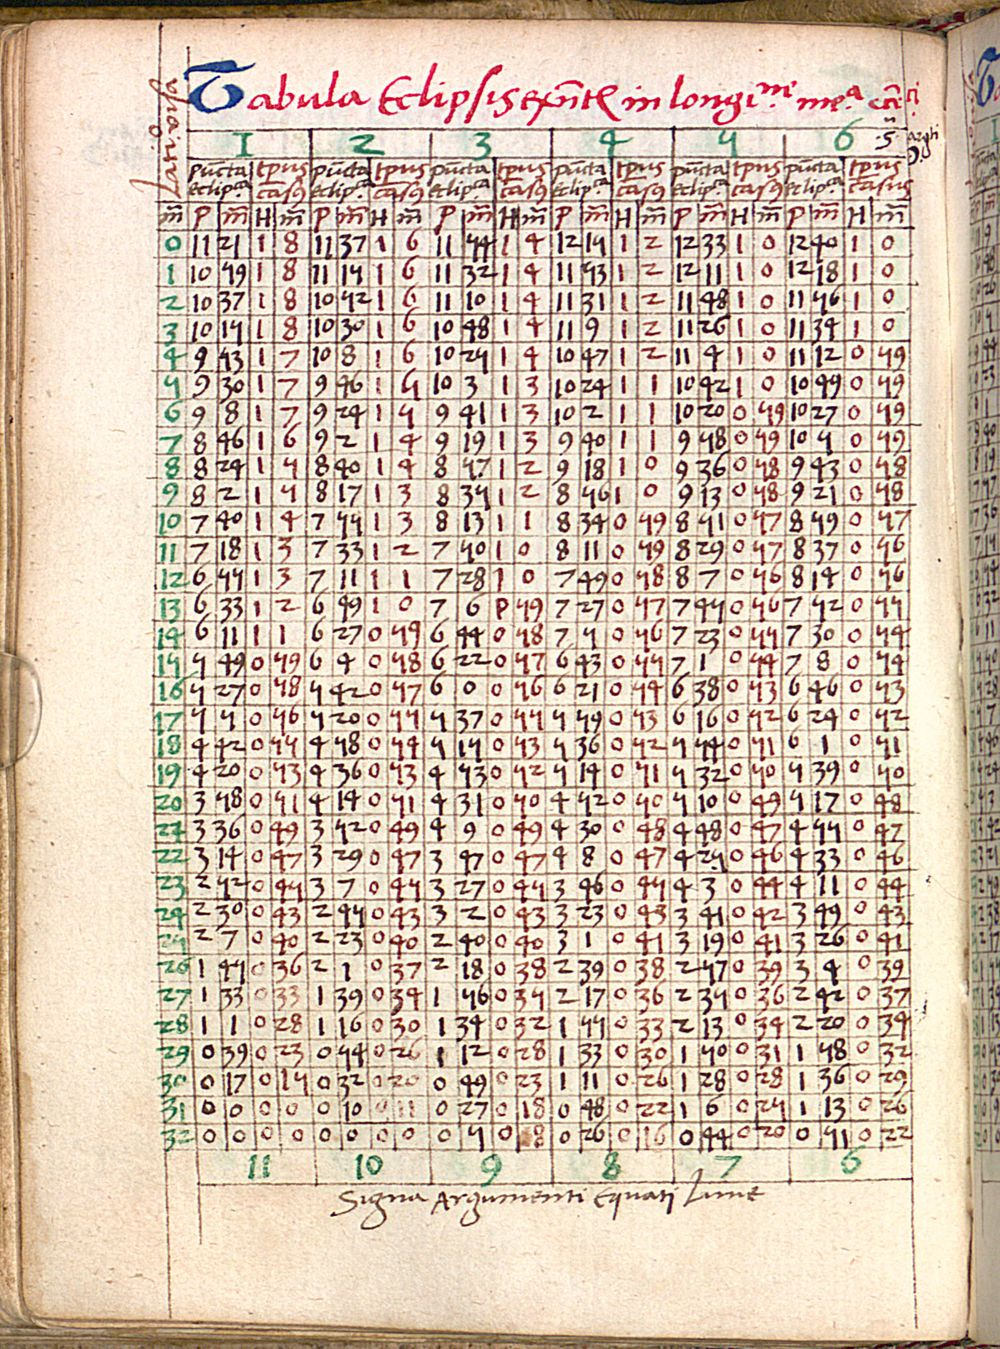 Tabula Eclipsis existentis in longitudine media
Latitudo
1 2 3 4 5 6 S
puncta tempus puncta tempus puncta tempus puncta tempus puncta tempus puncta tempus
eclip. casus eclip. casus eclip. casus eclip. casus eclip. casus eclip. casus
m̄ P m̄ H m̄ P m̄ H m̄ P m̄ H m̄ P m̄ H m̄ P m̄ H m̄ P m̄ H m̄
0 11 21 1 8 11 37 1 6 11 54 1 4 12 15 1 2 12 33 1 0 12 40 1 0
1 10 59 1 8 11 15 1 6 11 32 1 4 11 53 1 2 12 11 1 0 12 18 1 0
2 10 37 1 8 10 52 1 6 11 10 1 4 11 31 1 2 11 48 1 0 11 56 1 0
3 10 15 1 8 10 30 1 6 10 48 1 4 11 9 1 2 11 26 1 0 11 34 1 0
4 9 53 1 7 10 8 1 6 10 25 1 4 10 47 1 2 11 4 1 0 11 12 0 59
5 9 30 1 7 9 46 1 5 10 3 1 3 10 24 1 1 10 42 1 0 10 49 0 59
6 9 8 1 7 9 24 1 5 9 41 1 3 10 2 1 1 10 20 0 59 10 27 0 59
7 8 46 1 6 9 2 1 4 9 19 1 3 9 40 1 1 9 58 0 59 10 5 0 59
8 8 24 1 5 8 40 1 4 8 57 1 2 9 18 1 0 9 36 0 58 9 43 0 58
9 8 2 1 5 8 17 1 3 8 35 1 2 8 56 1 0 9 13 0 58 9 21 0 58
10 7 40 1 4 7 55 1 3 8 13 1 1 8 34 0 59 8 51 0 57 8 59 0 57
11 7 18 1 3 7 33 1 2 7 50 1 0 8 11 0 59 8 29 0 57 8 37 0 56
12 6 55 1 3 7 11 1 1 7 28 1 0 7 49 0 58 8 7 0 56 8 14 0 56
13 6 33 1 2 6 49 1 0 7 6 0 59 7 27 0 57 7 45 0 56 7 52 0 55
14 6 11 1 1 6 27 0 59 6 44 0 58 7 5 0 56 7 23 0 55 7 30 0 54
15 5 49 0 59 6 4 0 58 6 22 0 57 6 43 0 55 7 1 0 54 7 8 0 54
16 5 27 0 58 5 42 0 57 6 0 0 56 6 21 0 54 6 38 0 53 6 46 0 53
17 5 5 0 56 5 20 0 55 5 37 0 55 5 59 0 53 6 16 0 52 6 24 0 52
18 4 42 0 55 4 58 0 54 5 15 0 53 5 36 0 52 5 54 0 51 6 1 0 51
19 4 20 0 53 4 36 0 53 4 53 0 52 5 14 0 51 5 32 0 50 5 39 0 50
20 3 58 0 51 4 14 0 51 4 31 0 50 4 52 0 50 5 10 0 49 5 17 0 48
21 3 36 0 49 3 52 0 49 4 9 0 49 4 30 0 48 4 48 0 47 4 55 0 47
22 3 14 0 47 3 29 0 47 3 47 0 47 4 8 0 47 4 25 0 46 4 33 0 46
23 2 52 0 45 3 7 0 45 3 27 0 45 3 46 0 45 4 3 0 44 4 11 0 44
24 2 30 0 43 2 45 0 43 3 2 0 43 3 23 0 43 3 41 0 42 3 49 0 43
25 2 7 0 40 2 23 0 40 2 40 0 40 3 1 0 41 3 19 0 41 3 26 0 41
26 1 45 0 36 2 1 0 37 2 18 0 38 2 39 0 38 2 57 0 39 3 4 0 39
27 1 33 0 33 1 39 0 34 1 56 0 35 2 17 0 36 2 35 0 36 2 42 0 37
28 1 1 0 28 1 16 0 30 1 34 0 32 1 55 0 33 2 13 0 34 2 20 0 34
29 0 39 0 23 0 54 0 26 1 12 0 28 1 33 0 30 1 50 0 31 1 58 0 32
30 0 17 0 15 0 32 0 20 0 49 0 23 1 11 0 26 1 28 0 28 1 36 0 29
31 0 0 0 0 0 10 0 11 0 27 0 18 0 48 0 22 1 6 0 25 1 13 0 26
32 0 0 0 0 0 0 0 0 0 5 0 8 0 26 0 16 0 44 0 20 0 51 0 22
11 10 9 8 7 6
Signa Argumenti Equati Lune